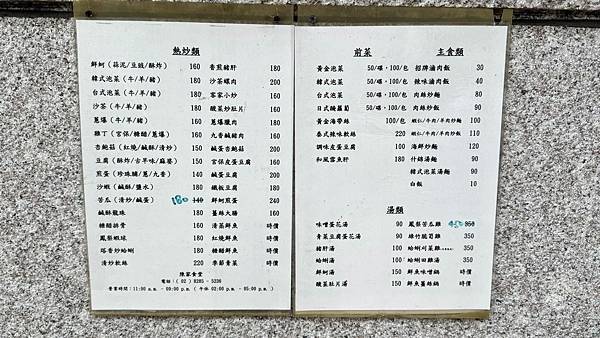 熱炒類
鮮蚵（蒜泥/豆豉/酥炸） 160 香煎豬肝 180
韓式泡菜（牛/羊/豬） 180 沙茶螺肉 200
台式泡菜（牛/羊/豬） 180 客家小炒 160
沙茶（牛/羊/豬） 180 酸菜炒肚片 160
蔥爆（牛/羊/豬） 180 蔥爆臘肉 180
雞丁（宮保/糖醋/蔥爆） 160 九香鹹豬肉 180
杏鮑菇（紅燒/鹹酥/清炒） 150 鹹蛋杏鮑菇 200
豆腐（酥炸/古早味/麻婆） 150 宮保皮蛋豆腐 160
煎蛋（珍珠脯/蔥/九香） 160 鹹蛋豆腐 200
沙蝦（鹹酥/鹽水） 180 鐵板豆腐 180
苦瓜（清炒/鹹蛋） 180 140 鮮蚵煎蛋 240
鹹酥龍珠 180 薑絲大腸 160
糖醋排骨 160 清蒸鮮魚 時價
鳳梨蝦球 180 紅燒鮮魚 時價
塔香炒蛤蜊 180 糖醋鮮魚 時價
清炒軟絲 220 季節青菜 時價
陳家食堂
電話：( 02 ) 8285 - 5236
營業時間：11:00 a.m. - 09:00 p.m. ( 午休 02:00 p.m. - 05:00 p.m. )
前菜 主食類
黃金泡菜 50/碟，100/包 招牌滷肉飯 30
韓式泡菜 50/碟，100/包 辣味滷肉飯 40
台式泡菜 50/碟，100/包 肉絲炒麵 80
日式醃蘿蔔 50/碟，100/包 肉絲炒飯 90
黃金海帶絲 100/包 蝦仁/牛肉/羊肉炒麵 100
泰式辣味軟絲 220 蝦仁/牛肉/羊肉炒飯 110
調味皮蛋豆腐 100 海鮮炒麵 120
和風雲魚肝 180 什錦湯麵 90
韓式泡菜湯麵 90
白飯 10
湯類
味噌蛋花湯 90 鳳梨苦瓜雞 450 350
青菜豆腐蛋花湯 90 綠竹脆筍雞 350
豬肝湯 100 蛤蜊刈菜雞 350
蛤蜊湯 100 蛤蜊田雞湯 350
鮮蚵湯 150 鮮魚味噌鍋 時價
酸菜肚片湯 150 鮮魚薑絲鍋 時價